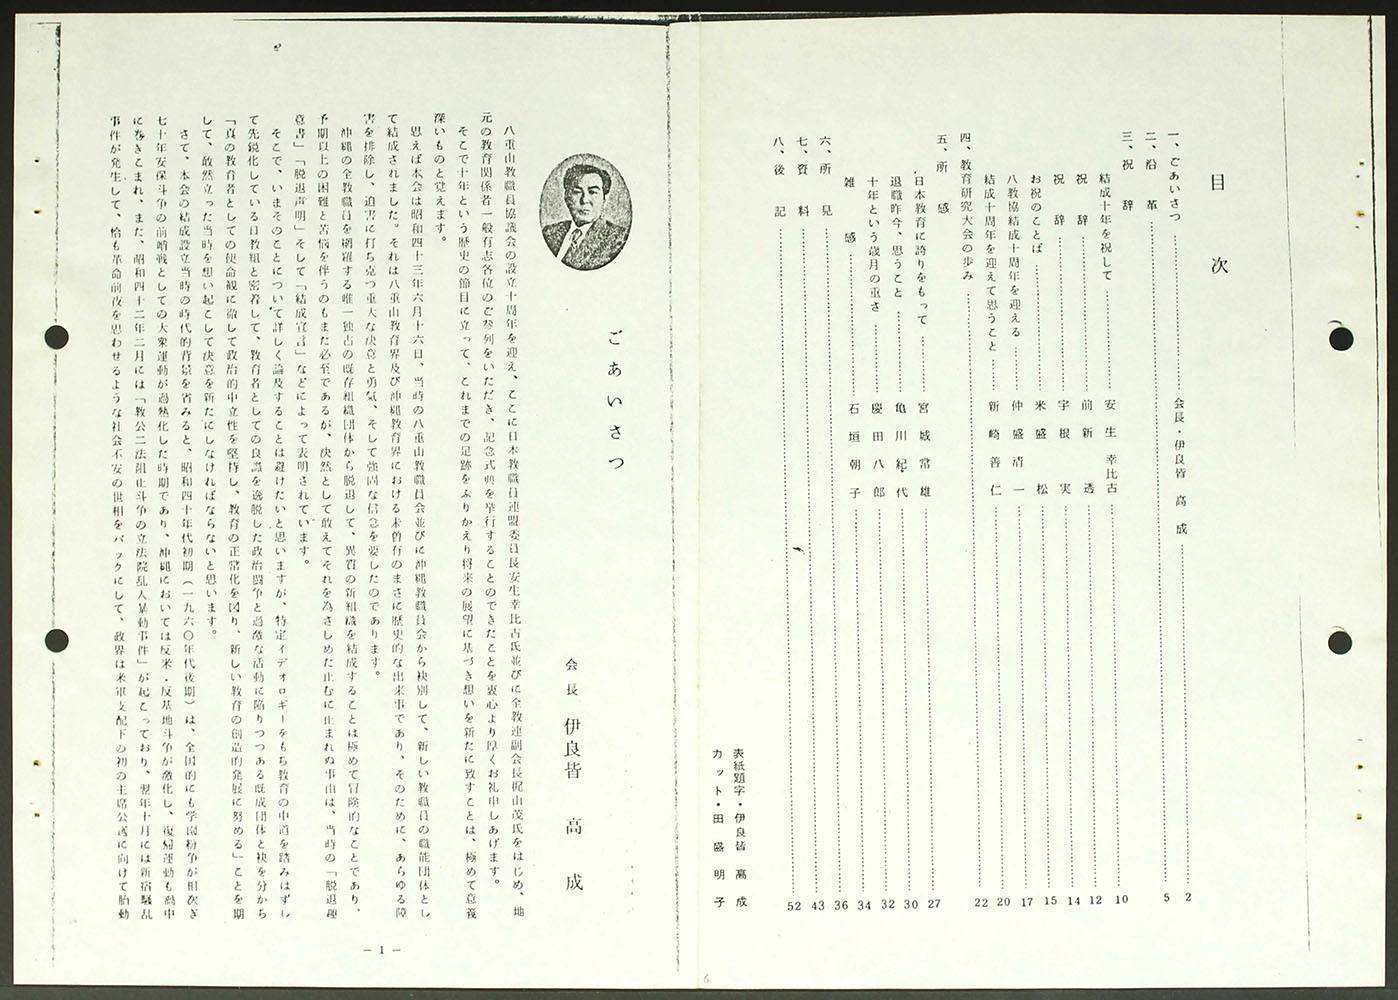 目次
一、ごあいさつ……会長・伊良皆 高成……2
二、沿革……5
三、祝辞
結成十年を祝して……安生幸比古……10
祝辞……前新透……12
祝辞……宇根実……14
お祝のことば……米盛松……15
八教協結成十周年を迎える……仲盛清一……17
結成十周年を迎えて思うこと……新崎善仁……20
四、教育研究大会の歩み……22
五、所感
日本教育に誇りをもって……宮城常雄……27
退職昨今、思うこと……亀川紀代……30
十年という歳月の重さ……慶田八郎……32
雑感……石垣朝子……34
六、所見……36
七、資料……43
八、後記……52
表紙題字・伊良皆高成
カット・田盛明子
ごあいさつ
会長 伊良皆 高成
八重山教職員協議会の設立十周年を迎え、ここに日本教職員連盟委員長安生幸比古氏並びに全教連副会長梶山茂氏をはじめ、地
元の教育関係者一般有志各位のご参列をいただき、記念式典を挙行することのできたことを衷心より厚くお礼申しあげます。
そこで十年という歴史の節目に立って、これまでの足跡をふりかえり将来の展望に基づき想いを新たに致すことは、極めて意義
深いものと覚えます。
思えば本会は昭和四十三年六月十六日、当時の八重山教職員会並びに沖縄教職員会から袂別して、新しい教職員の職能団体とし
て結成されました。それは八重山教育界及び沖縄教育界における未曽有のまさに歴史的な出来事であり、そのために、あらゆる障
害を排除し、迫害に打ち克つ重大な決意と勇気、そして強固な信念を要したのであります。
沖縄の全教職員を網羅する唯一独占の既存組織団体から脱退して、異質の新組織を結成することは極めて冒険的なことであり、
予期以上の困難と苦悩を伴うのもまた必至であるが、決然として敢えてそれを為さしめた止むに止まれぬ事由は、当時の「脱退趣
意書」「脱退声明」そして「結成宣言」などによって表明されています。
そこで、いまそのことについて詳しく論及することは避けたいと思いますが、特定イデオロギーをもち教育の中道を踏みはずし
て先鋭化している日教組と密着して、教育者としての良識を逸脱した政治闘争と過激な活動に陥りつつある既成団体と袂を分かち
「真の教育者としての使命観に徹して政治的中立性を堅持し、教育の正常化を図り、新しい教育の創造的発展に努める」ことを期
して、敢然立った当時を想い起こして決意を新たにしなければならないと思います。
さて、本会の結成設立当時の時代的背景を省みると、昭和四十年代初期(一九六〇年代後期)は、全国的にも学園紛争が相次ぎ
七十年安保斗争の前哨戦としての大衆運動が過熱化した時期であり、沖縄においては反米・反基地斗争が激化し、復帰運動も渦中
に巻きこまれ、また、昭和四十二年二月には「教公二法阻止斗争の立法院乱入暴動事件」が起こっており、翌年十月には新宿騒乱
事件が発生して、恰も革命前夜を思わせるような社会不安の世相をバックにして、政界は米軍支配下の初の主席公選に向けて胎動
－1－
6